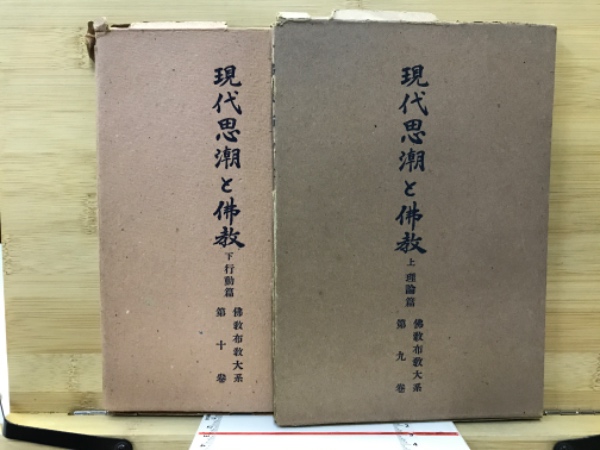 現代思潮と佛教
上 理論篇
佛教布教大系
第九卷
現代思潮と佛教
下 行動篇
佛教布教大系
第十卷